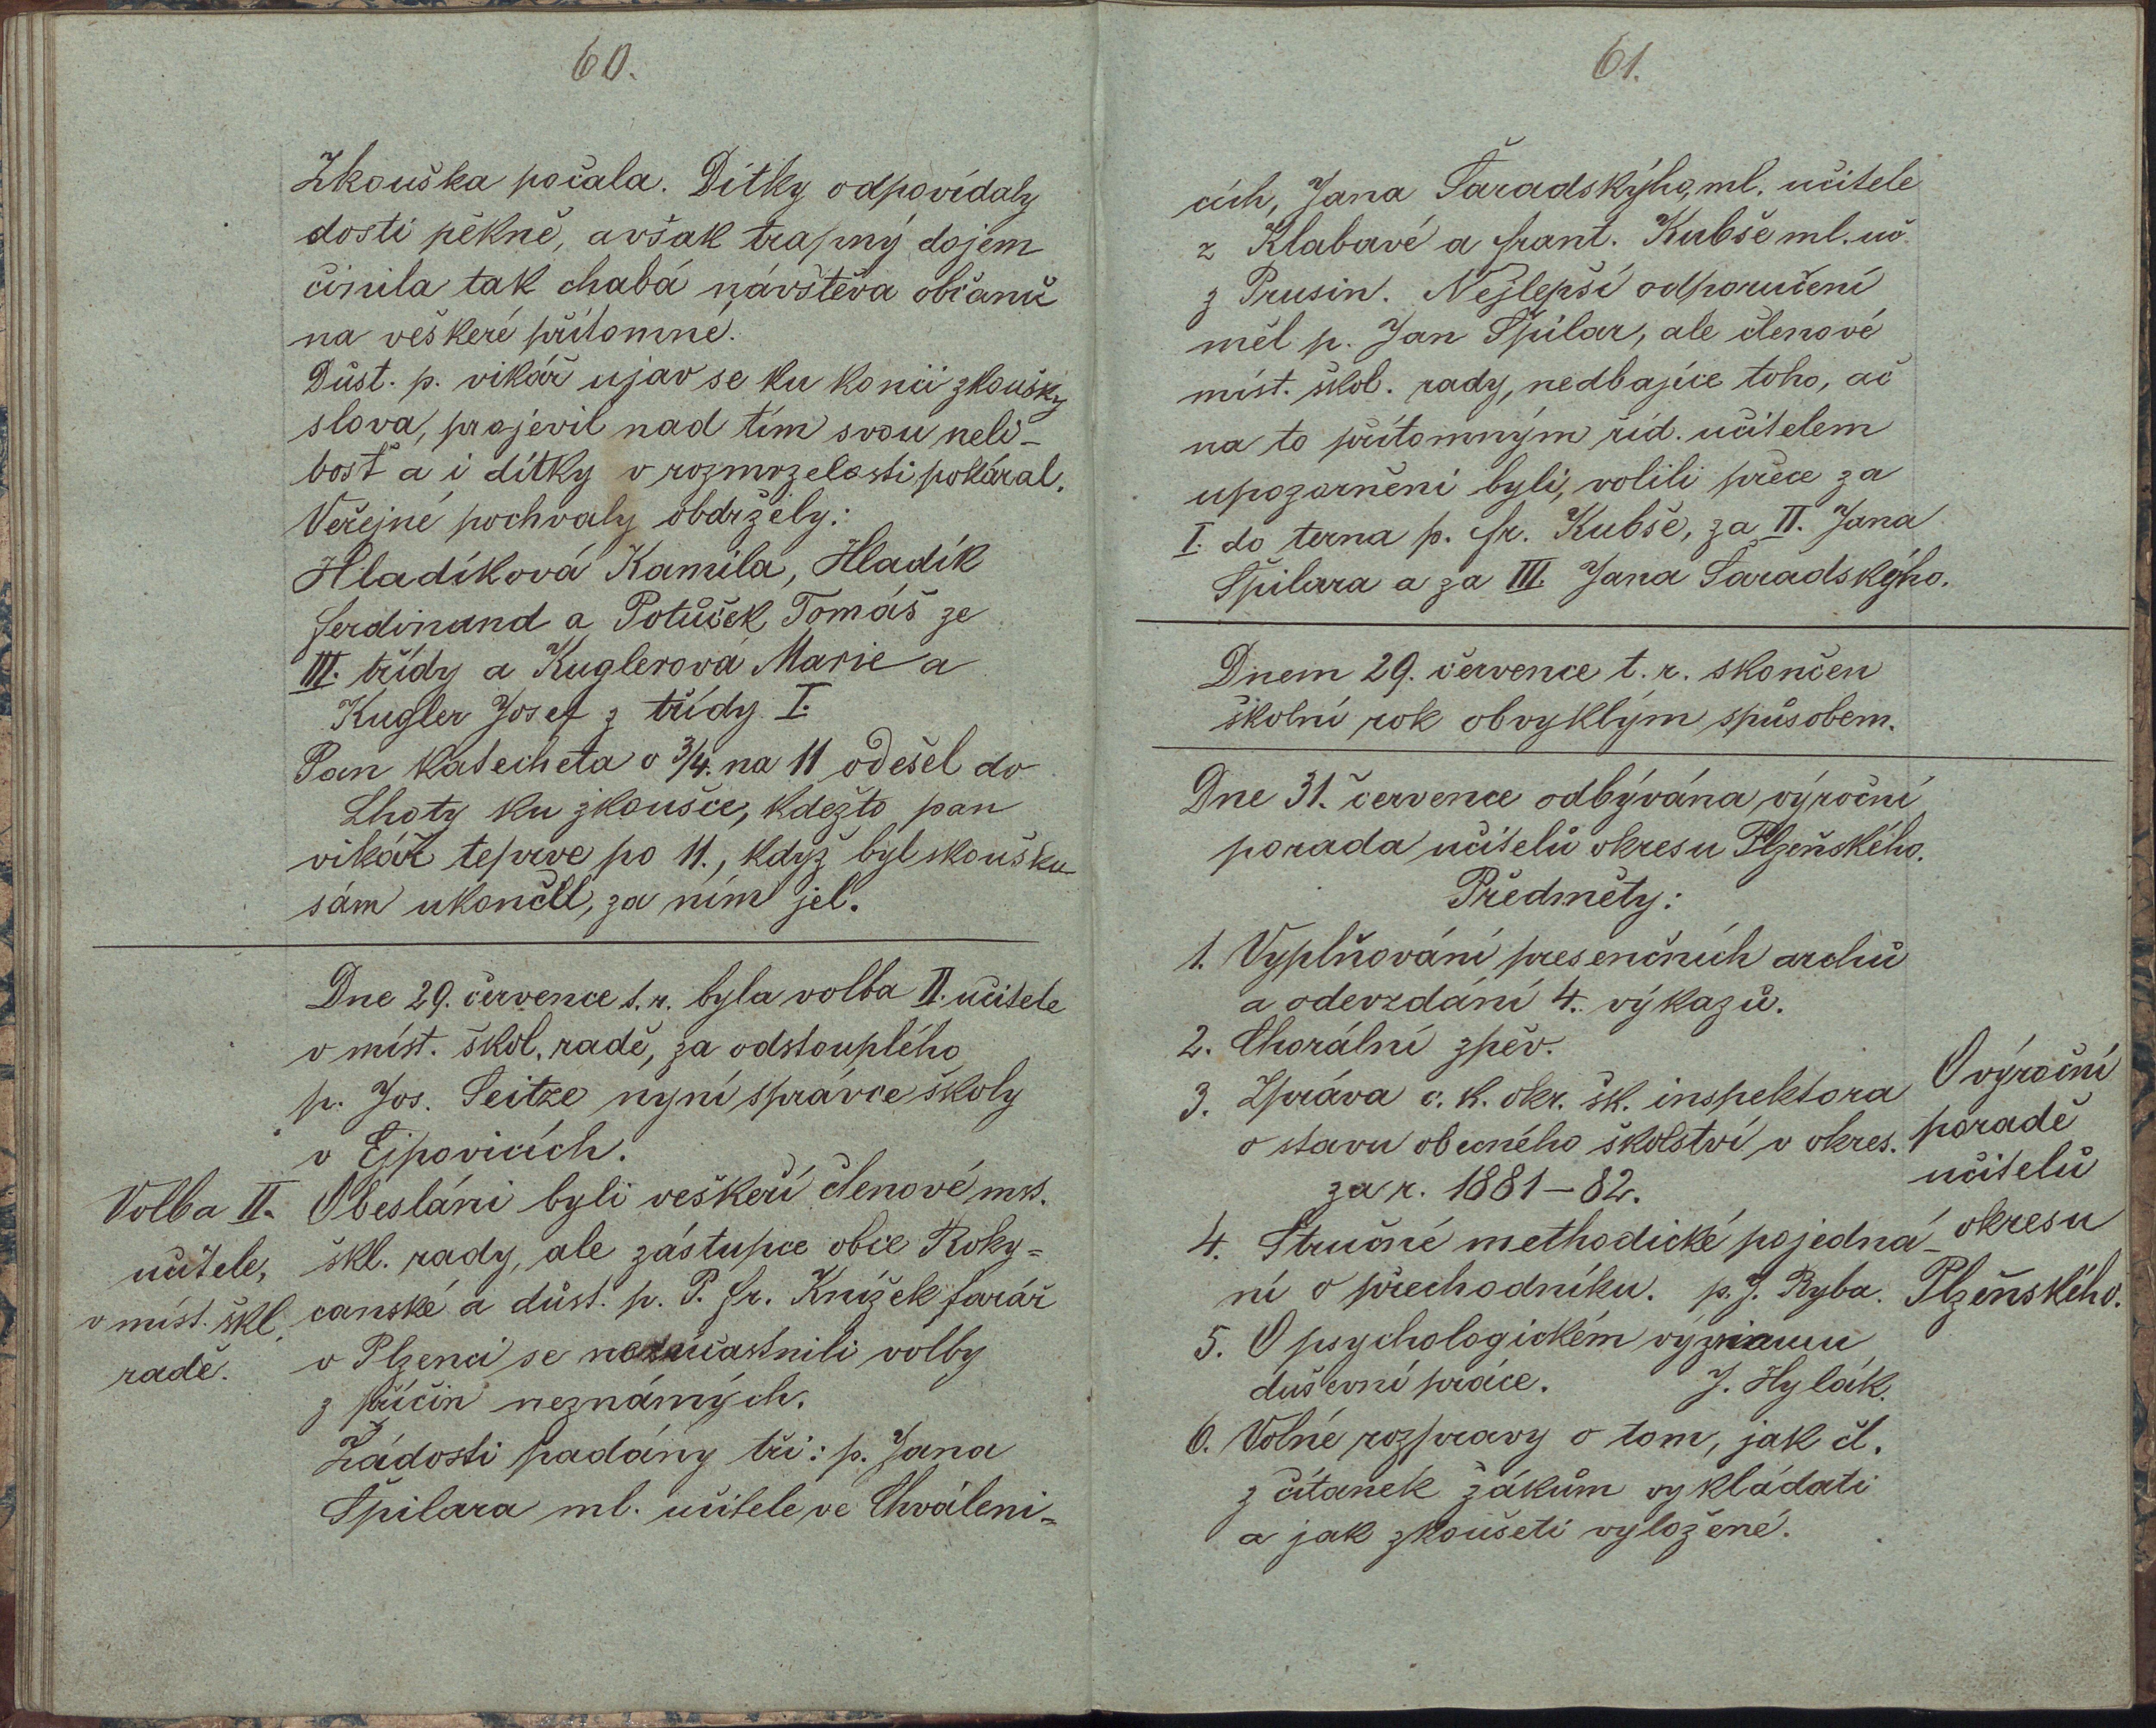 60.
Zkouška počala. Dítky odpovídaly
dosti pěkně, avšak trapný dojem
činila tak chabá návštěva občanů
na veškeré přítomné.
Důst. p. vikář ujav se ku konci zkoušky
slova, projevil nad tím svou neli-
bosť a i dítky v rozmrzelosti pokáral.
Veřejné pochvaly obdržely:
Hladíková Kamila, Hladík
Ferdinand a Potůček Tomáš ze
III. třídy a Kuglerová Marie a
Kugler Josef z třídy I.
Pan katecheta o 3/4. na 11 odešel do
Lhoty ku zkoušce, kdežto pan
vikář teprve po 11., když byl skoušku
sám ukončil, za ním jel.
Dne 29. července t. r. byla volba II. učitele
v míst. škol. radě, za odstouplého
p. Jos. Seitze nyní správce školy
v Ejpovicích.
Volba II.
učitele,
v míst. škl.
radě.
Obesláni byli veškeří členové mís.
škl. rady, ale zástupce obce Roky-
canské a důst. p. P. Fr. Knížek farář
v Plzenci se nezúčastnili volby
z příčin neznámých.
Žádosti padány tři: p. Jana
Špilara ml. učitele ve Chváleni-
61.
cích, Jana Šaradskýho, ml. učitele
z Klabavé a Frant. Kubše ml. uč.
z Prusin. Nejlepší odporučení
měl p. Jan Špilar, ale členové
míst. škol. rady, nedbajíce toho, ač
na to přítomným říd. učitelem
upozorněni byli, volili přece za
I. do terna p. Fr. Kubše, za II. Jana
Špilara a za III. Jana Šaradskýho.
Dnem 29. července t. r. skončen
školní rok obvyklým spůsobem.
Dne 31. července odbývána výroční
porada učitelů okresu Plzeňského.
Předměty:
1. Vyplňování presenčních archů
a odevzdání 4. výkazů.
2. Chorální zpěv.
3. Zpráva c. k. okr. šk. inspektora
o stavu obecného školství v okres.
za r. 1881-82.
4. Stručné methodické pojedná-
ní o přechodníku. p. J. Ryba.
5. O psychologickém významu
duševní práce. J. Hylák.
6. Volné rozpravy o tom, jak čl.
z čítanek žákům vykládati
a jak zkoušeti vyložené.
O výroční
poradě
učitelů
okresu
Plzeňského.